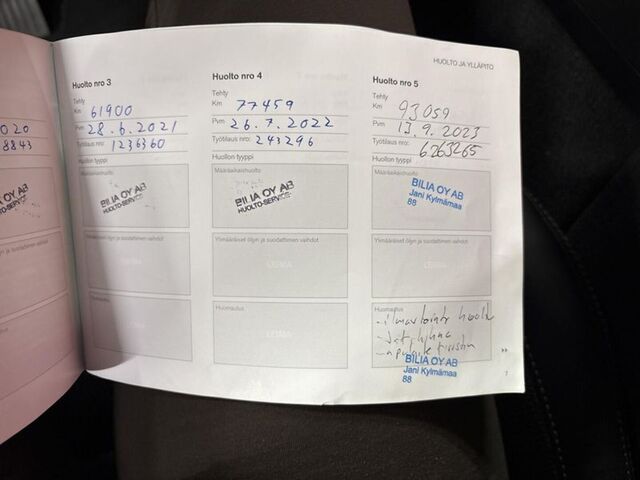 HUOLTO JA YLLÄPITO
020
8843
Huolto nro 3
Tehty
Km 61900
Pvm 28.6.2021
Työtilaus nro: 1236360
Huollon tyyppi
BILIA OY AB
HUOLTO-SERVICE
Ylimääräiset öljyn ja suodattimen vaihdot
LEIMA
Huomautus
LEIMA
Huolto nro 4
Tehty
Km 77459
Pvm 26.7.2022
Työtilaus nro: 243296
Huollon tyyppi
Määräaikaishuolto
BILIA OY AB
HUOLTO-SERVICE
Ylimääräiset öljyn ja suodattimen vaihdot
LEIMA
Huomautus
LEIMA
Huolto nro 5
Tehty
Km 93059
Pvm 13.9.2023
Työtilaus nro: 6263265
Huollon tyyppi
Määräaikaishuolto
BILIA OY AB
Jani Kylmämaa
88
Ylimääräiset öljyn ja suodattimen vaihdot
LEIMA
Huomautus
- ilmastointi huolto
BILIA OY AB
Jani Kylmämaa
88
7